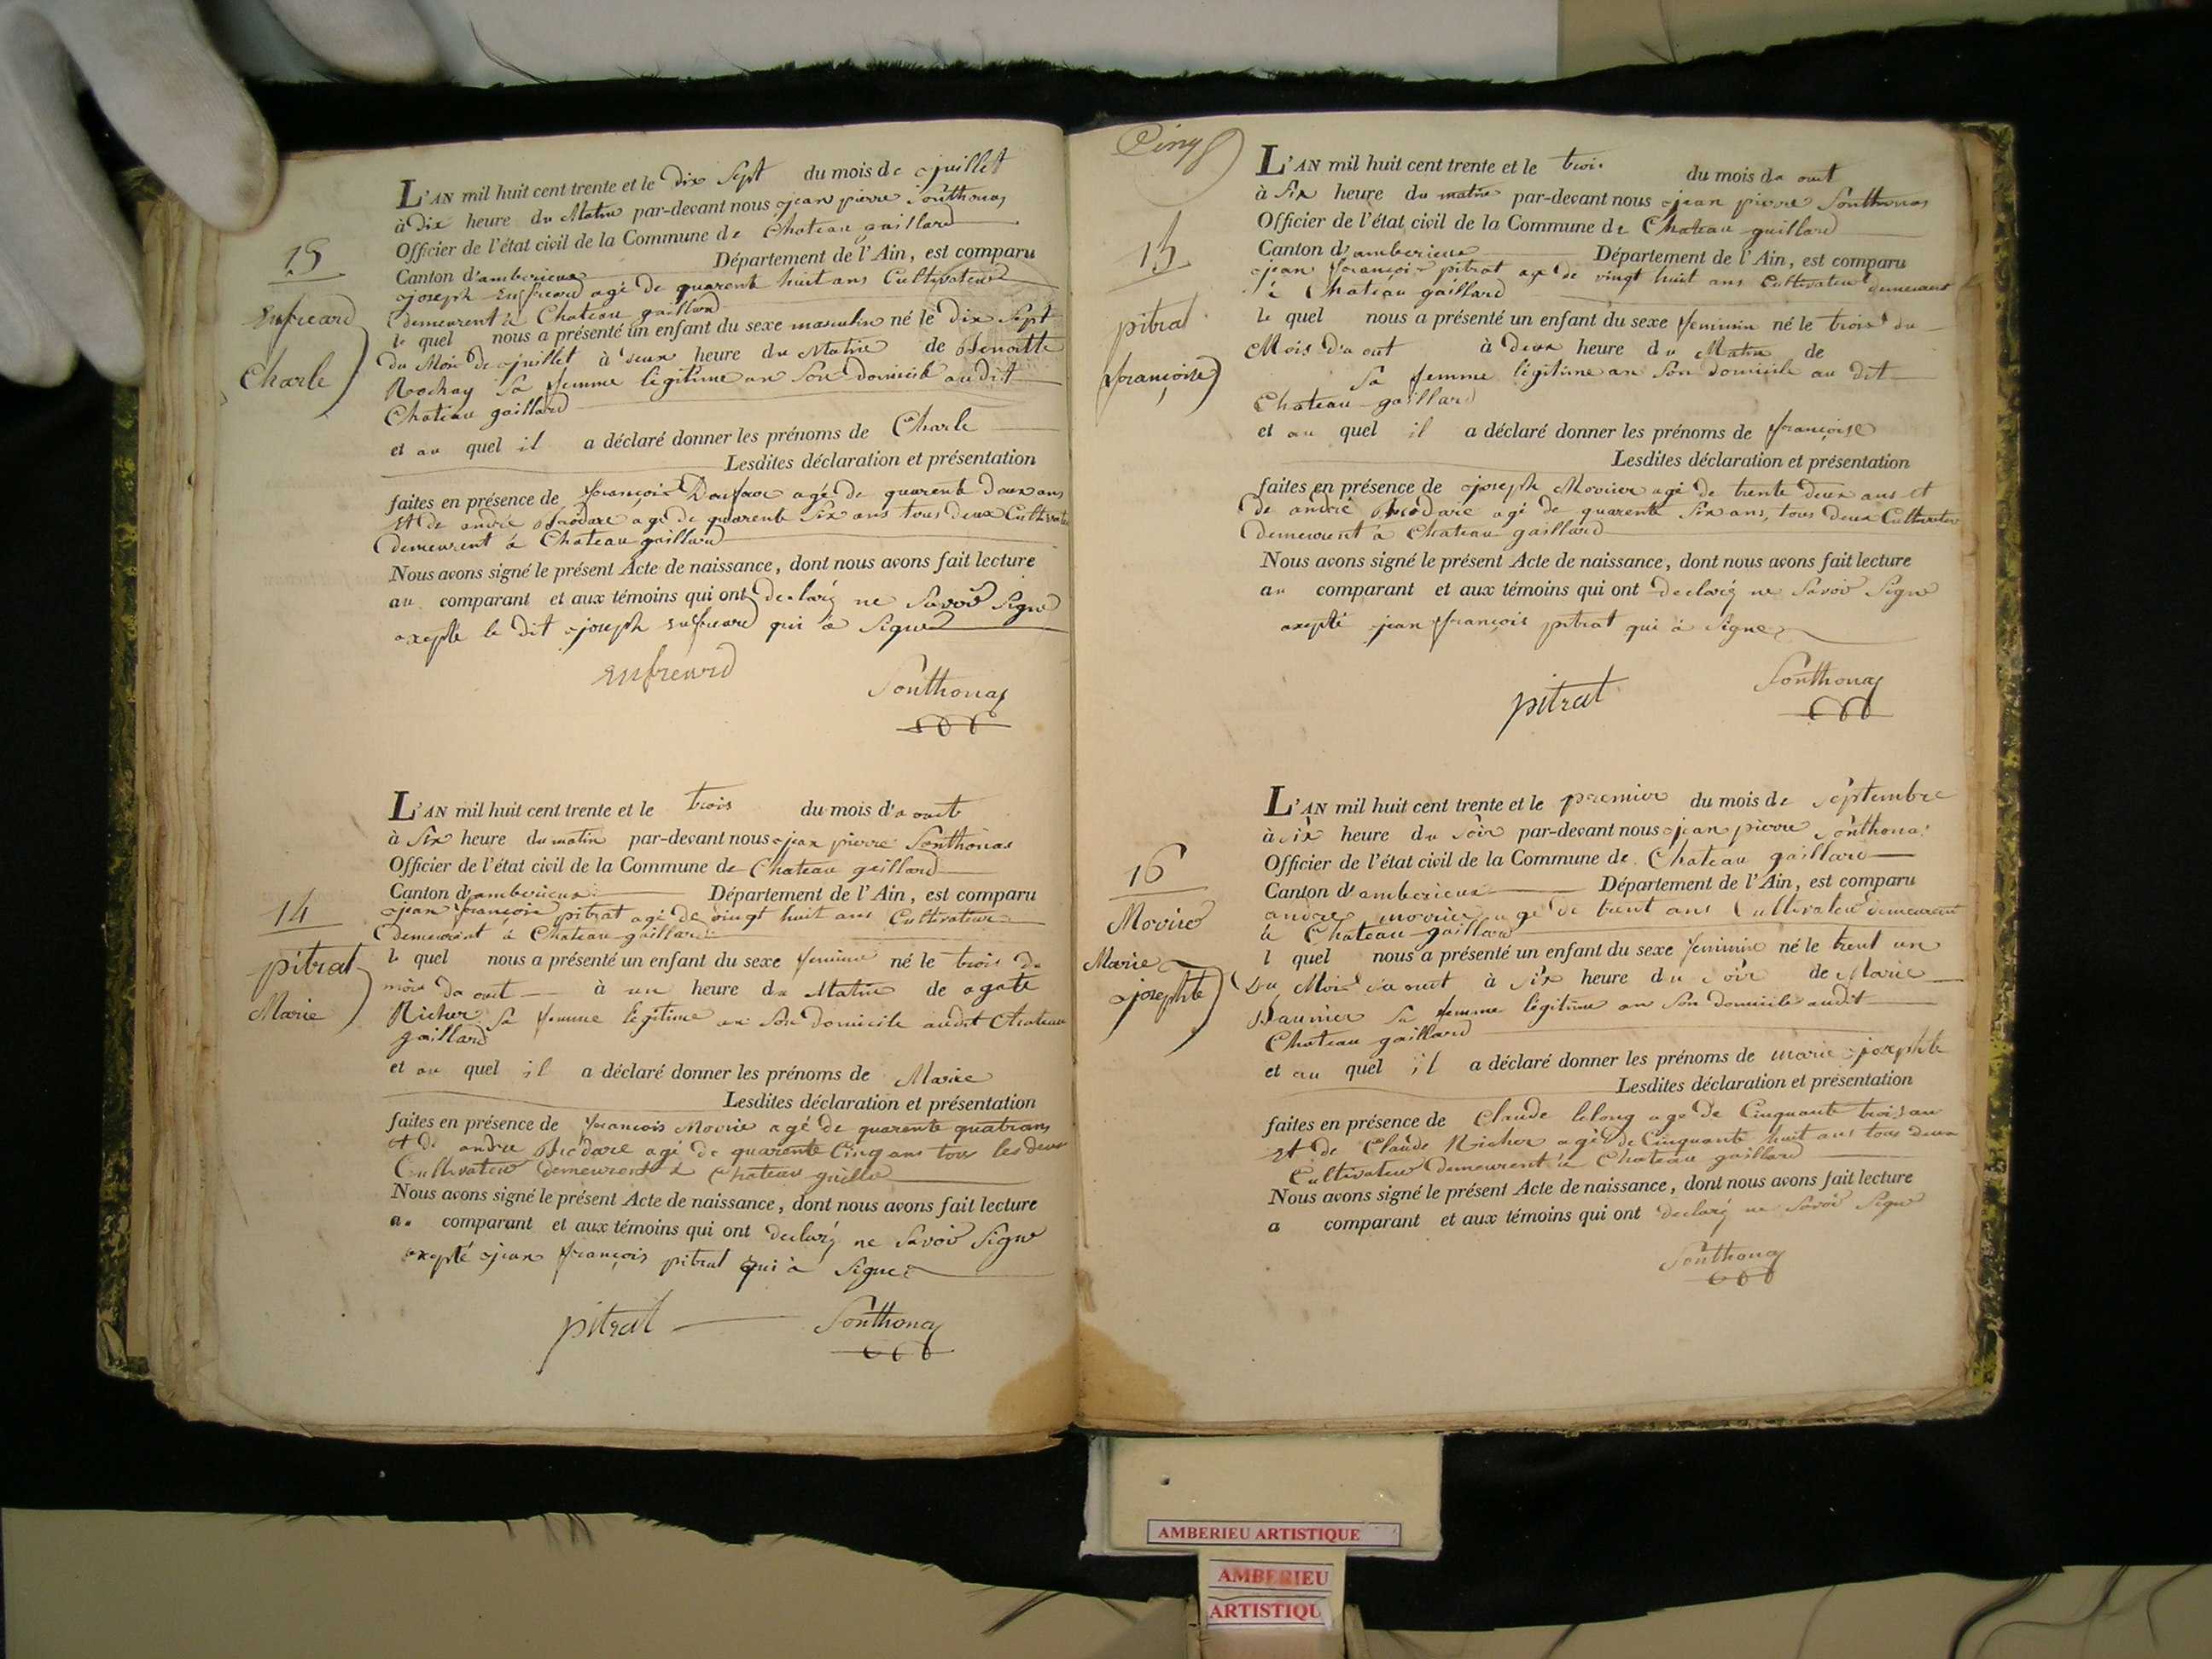 15
Enfreard
Charle
L'AN mil huit cent trente et le dix sept du mois de juillet
à Dix heure du Matin par-devant nous jean pierre Sonthonas
Officier de l'état civil de la Commune de Chateau gaillard
Canton d'amberieux Département de l'Ain, est comparu
joseph Enfreard agé de quarente huit ans Cultivateur
demeurent à Chateau gaillard
le quel nous a présenté un enfant du sexe masculin né le dix sept
du Mois de juillet à deux heure du Matin de Benoitte
Rochay Sa femme légitime an Son domicile audit
Chateau gaillard
et au quel il a déclaré donner les prénoms de Charle
Lesdites déclaration et présentation
faites en présence de françois agé de quarente deux ans
et de andré agé de quarente Six ans tous deux Cultivateur
demeurent à Chateau gaillard
Nous avons signé le présent Acte de naissance, dont nous avons fait lecture
au comparant et aux témoins qui ont declaré ne Savoir Signe
axepte le dit joseph enfreard qui à Signe
enfreard Sonthonas
14
pitrat
Marie
L'AN mil huit cent trente et le trois du mois d'a out
à Six heure du matin par-devant nous jean pierre Sonthonas
Officier de l'état civil de la Commune de Chateau gaillard
Canton d'amberieux Département de l'Ain, est comparu
jean françois pitrat agé de vingt huit ans Cultivateur
demeurent à Chateau gaillard
le quel nous a présenté un enfant du sexe feminin né le trois du
mois da out à un heure du Matin de agate
Richer Sa femme légitime an Son domicile audit Chateau
gaillard
et au quel il a déclaré donner les prénoms de Marie
Lesdites déclaration et présentation
faites en présence de françois Movie agé de quarente quatrans
et de andre agé de quarente Cinq ans tous les deux
Cultivateur demeurent à Chateau
Nous avons signé le présent Acte de naissance, dont nous avons fait lecture
au comparant et aux témoins qui ont declaré ne Savoir Signe
axepté jean françois pitrat qui à Signe
pitrat Sonthonas
Cinq
15
pitrat
françoise
L'AN mil huit cent trente et le trois du mois da out
à Six heure du matin par-devant nous jean pierre Sonthonas
Officier de l'état civil de la Commune de Chateau gaillard
Canton d'amberieux Département de l'Ain, est comparu
jean françois pitrat agé de vingt huit ans Cultivateur demeurent
à Chateau gaillard
le quel nous a présenté un enfant du sexe feminin né le trois du
Mois da out à deux heure du Matin de
Sa femme légitime an Son domicile au dit
Chateau gaillard
et au quel il a déclaré donner les prénoms de françoise
Lesdites déclaration et présentation
faites en présence de joseph Movier agé de trente deux ans et
de andré agé de quarente Six ans, tous deux Cultivateur
demeurent à Chateau gaillard
Nous avons signé le présent Acte de naissance, dont nous avons fait lecture
au comparant et aux témoins qui ont declaré ne Savoir Signe
axepté jean françois pitrat qui à Signe
pitrat Sonthonas
16
Movire
Marie
josephte
L'AN mil huit cent trente et le premier du mois de Septembre
à six heure du Soir par-devant nous jean pierre Sonthonas
Officier de l'état civil de la Commune de Chateau gaillard
Canton d'amberieux Département de l'Ain, est comparu
andre movier agé de trent ans Cultivateur demeurent
à Chateau gaillard
l quel nous a présenté un enfant du sexe feminin né le trent un
Du Mois da out à six heure du Soir de Marie
Baunier Sa femme légitime an Son domicile audit
Chateau gaillard
et au quel il a déclaré donner les prénoms de marie josephte
Lesdites déclaration et présentation
faites en présence de Claude lelong age de Cinquante trois an
et de Claude Richer agé de Cinquante huit ans tous deux
Cultivateur demeurent à Chateau gaillard
Nous avons signé le présent Acte de naissance, dont nous avons fait lecture
a comparant et aux témoins qui ont declaré ne Savoir Signe
Sonthonas
AMBERIEU ARTISTIQUE
AMBERIEU
ARTISTIQU